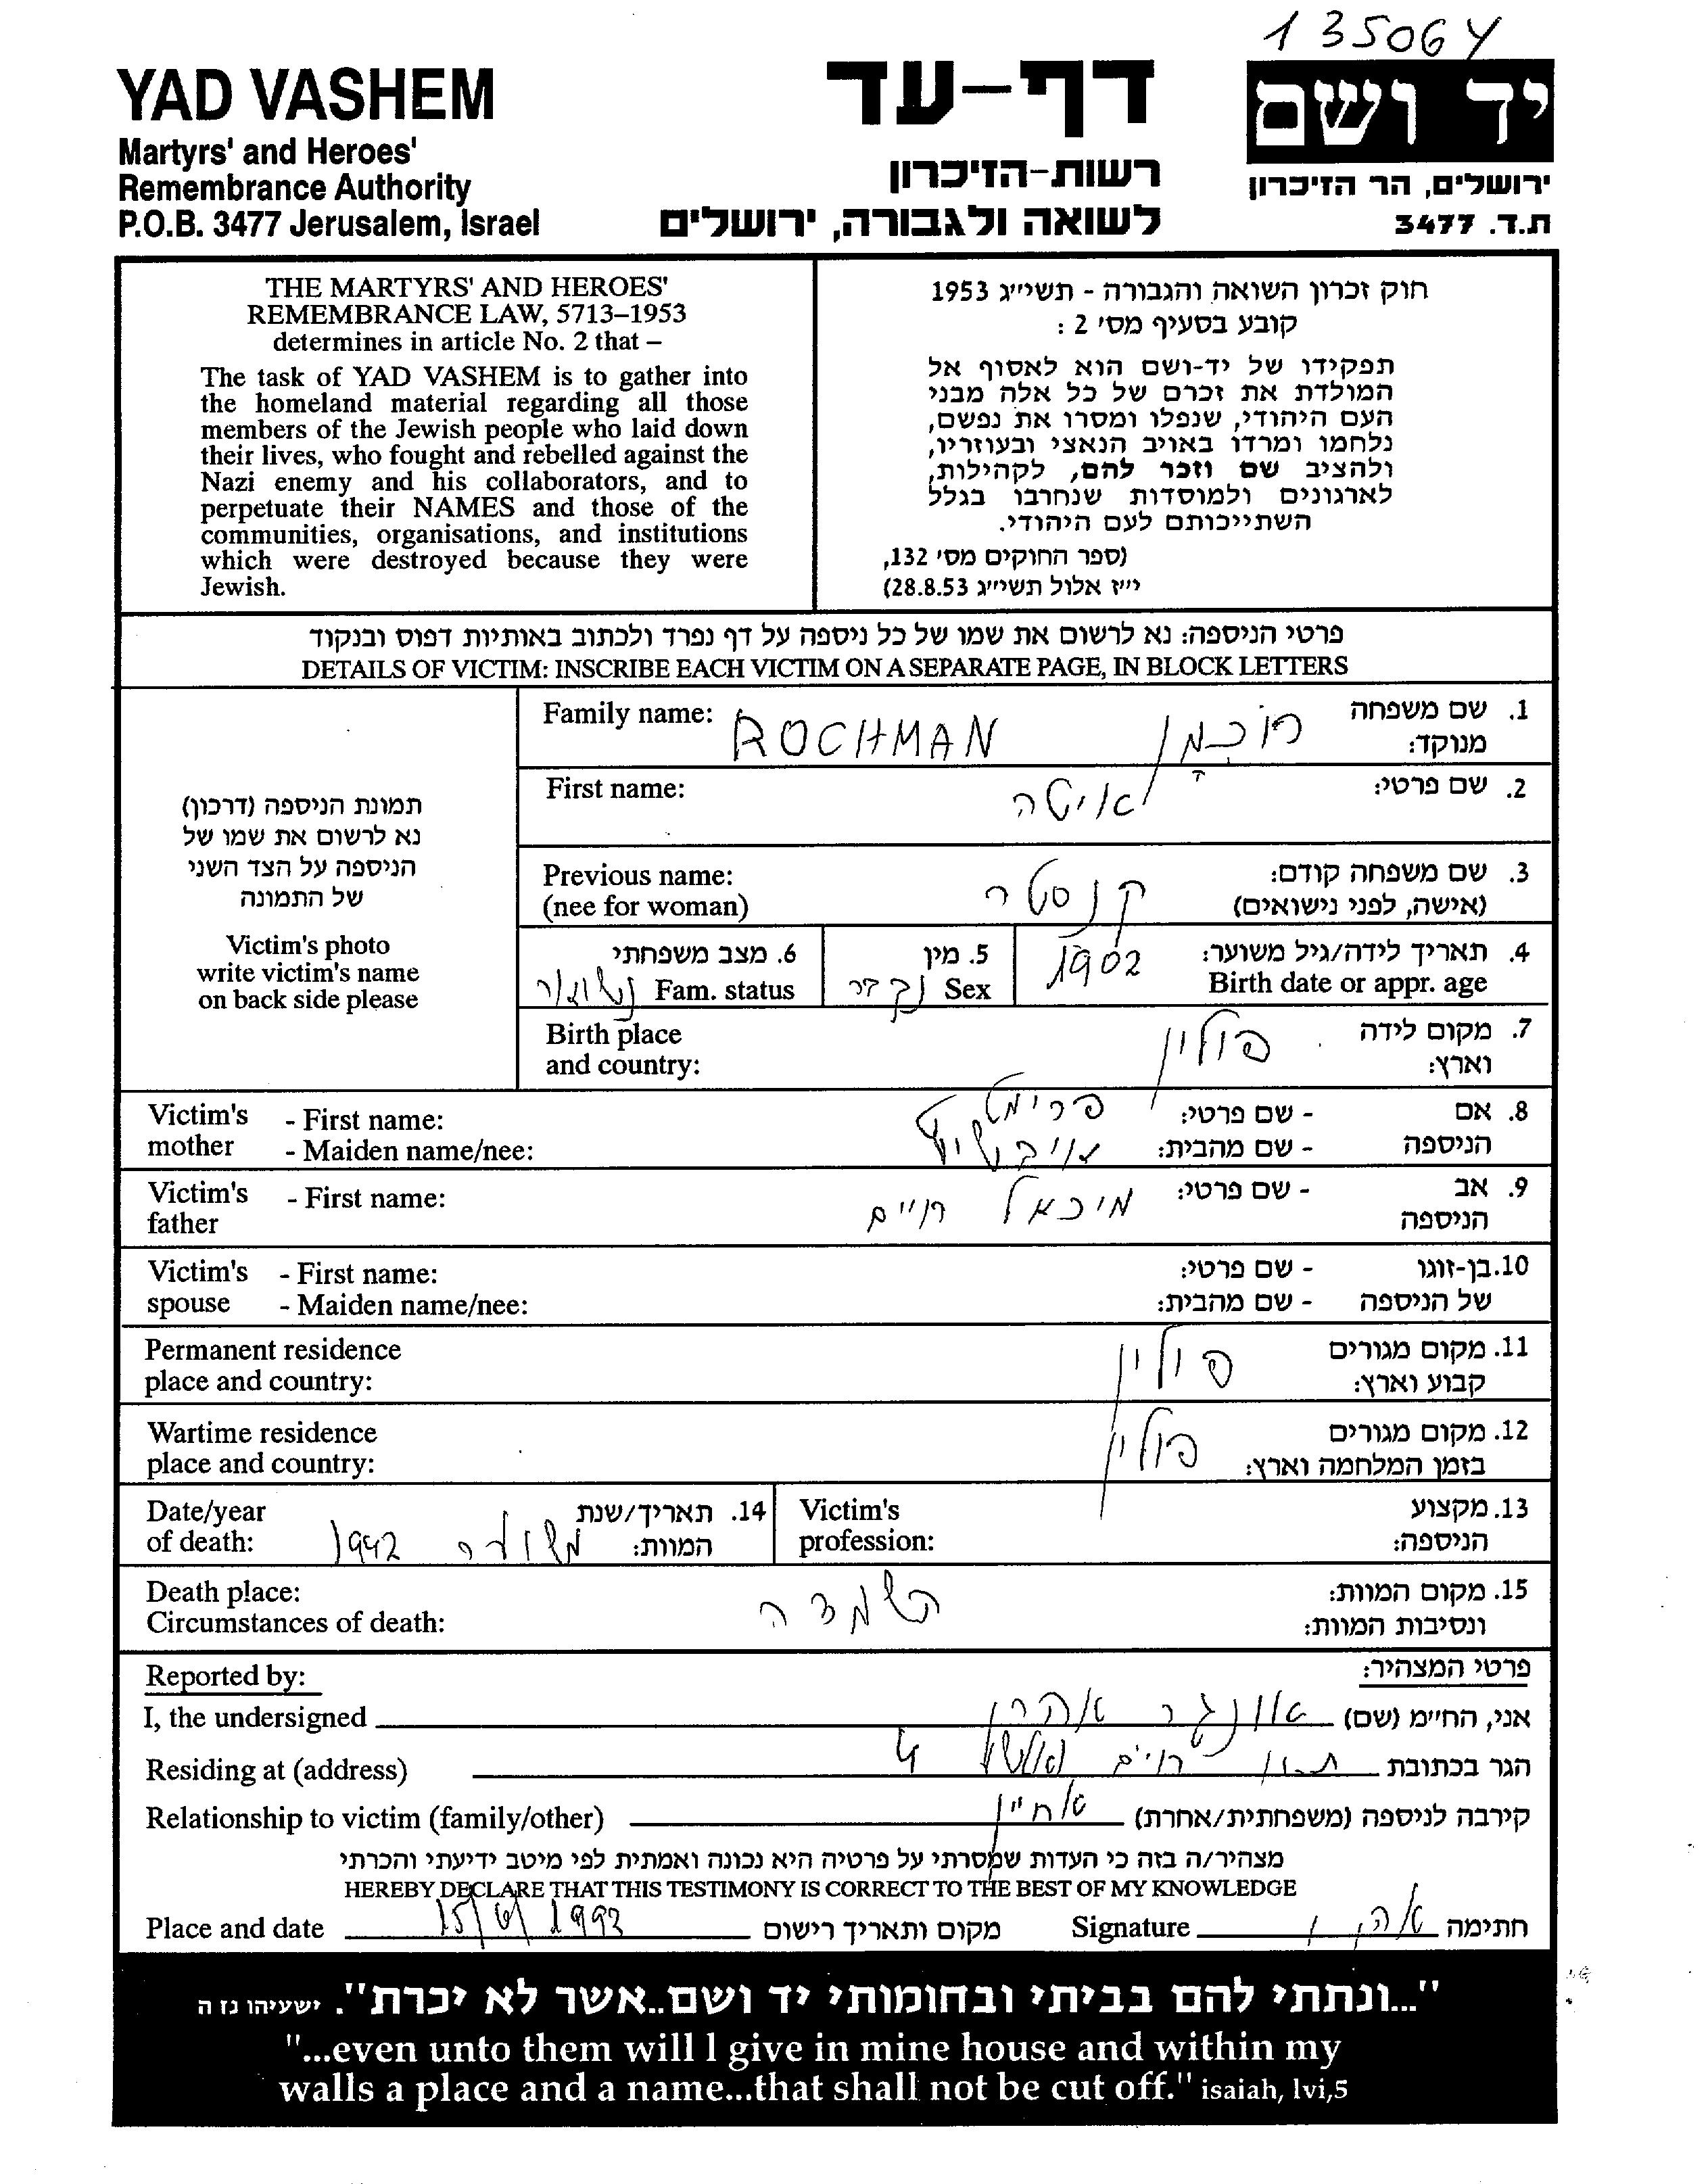 135064
YAD VASHEM
Martyrs' and Heroes'
Remembrance Authority
P.O.B. 3477 Jerusalem, Israel
דף-עד
רשות-הזיכרון
לשואה ולגבורה, ירושלים
יד ושם
ירושלים, הר הזיכרון
ת.ד. 3477
THE MARTYRS' AND HEROES'
REMEMBRANCE LAW, 5713–1953
determines in article No. 2 that –
The task of YAD VASHEM is to gather into
the homeland material regarding all those
members of the Jewish people who laid down
their lives, who fought and rebelled against the
Nazi enemy and his collaborators, and to
perpetuate their NAMES and those of the
communities, organisations, and institutions
which were destroyed because they were
Jewish.
חוק זכרון השואה והגבורה - תשי״ג 1953
קובע בסעיף מס׳ 2 :
תפקידו של יד-ושם הוא לאסוף אל
המולדת את זכרם של כל אלה מבני
העם היהודי, שנפלו ומסרו את נפשם,
נלחמו ומרדו באויב הנאצי ובעוזריו,
ולהציב שם וזכר להם, לקהילות,
לארגונים ולמוסדות שנחרבו בגלל
השתייכותם לעם היהודי.
(ספר החוקים מס׳ 132,
י״ז אלול תשי״ג 28.8.53)
פרטי הניספה: נא לרשום את שמו של כל ניספה על דף נפרד ולכתוב באותיות דפוס ובנקוד
DETAILS OF VICTIM: INSCRIBE EACH VICTIM ON A SEPARATE PAGE, IN BLOCK LETTERS
תמונת הניספה (דרכון)
נא לרשום את שמו של
הניספה על הצד השני
של התמונה
Victim's photo
write victim's name
on back side please
Family name: ROCHMAN רוכמן 1. שם משפחה
מנוקד:
First name: איטה 2. שם פרטי:
Previous name: קנסטר 3. שם משפחה קודם:
(nee for woman) (אישה, לפני נישואים)
6. מצב משפחתי 5. מין 1902 4. תאריך לידה/גיל משוער:
Fam. status נקבה Sex Birth date or appr. age
Birth place פולין 7. מקום לידה
and country: וארץ:
Victim's - First name: פרימט - שם פרטי: 8. אם
mother - Maiden name/nee: - שם מהבית: הניספה
Victim's - First name: מיכאל חיים - שם פרטי: 9. אב
father הניספה
Victim's - First name: - שם פרטי: 10. בן-זוגו
spouse - Maiden name/nee: - שם מהבית: של הניספה
Permanent residence פולין 11. מקום מגורים
place and country: קבוע וארץ:
Wartime residence פולין 12. מקום מגורים
place and country: בזמן המלחמה וארץ:
Date/year 14. תאריך/שנת Victim's 13. מקצוע
of death: 1942 המוות: profession: הניספה:
Death place: השמדה 15. מקום המוות:
Circumstances of death: ונסיבות המוות:
Reported by: פרטי המצהיר:
I, the undersigned אונגר אהרן אני, החי״מ (שם)
Residing at (address) 4 חיים הגר בכתובת
Relationship to victim (family/other) אחיין קירבה לניספה (משפחתית/אחרת)
מצהיר/ה בזה כי העדות שמסרתי על פרטיה היא נכונה ואמתית לפי מיטב ידיעתי והכרתי
HEREBY DECLARE THAT THIS TESTIMONY IS CORRECT TO THE BEST OF MY KNOWLEDGE
Place and date 1992 מקום ותאריך רישום Signature חתימה
"...ונתתי להם בביתי ובחומותי יד ושם..אשר לא יכרת". ישעיהו נו ה
"...even unto them will I give in mine house and within my
walls a place and a name...that shall not be cut off." isaiah, lvi,5